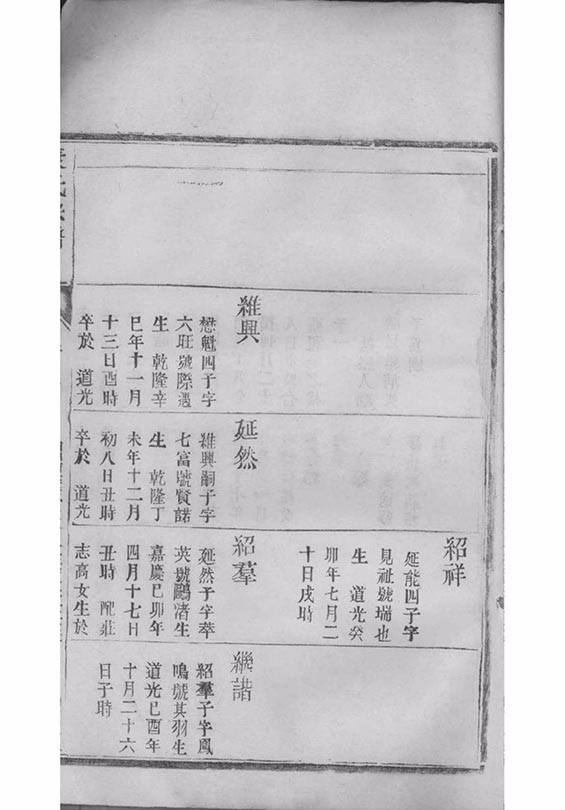 維興
懋魁四子字
六班號際遇
生 乾隆辛
巳年十一月
十三日酉時
卒於 道光
延然
維興嗣子字
七富號賢諾
生 乾隆丁
未年十二月
初八日丑時
卒於 道光
紹祥
延能四子字
見祉號瑞也
生 道光癸
卯年七月二
十日戌時
紹羣
延然子字萃
英號鷗渚生
嘉慶巳卯年
四月十七日
丑時 配莊
志高女生於
繼諧
紹羣子字鳳
鳴號其羽生
道光巳酉年
十月二十六
日子時